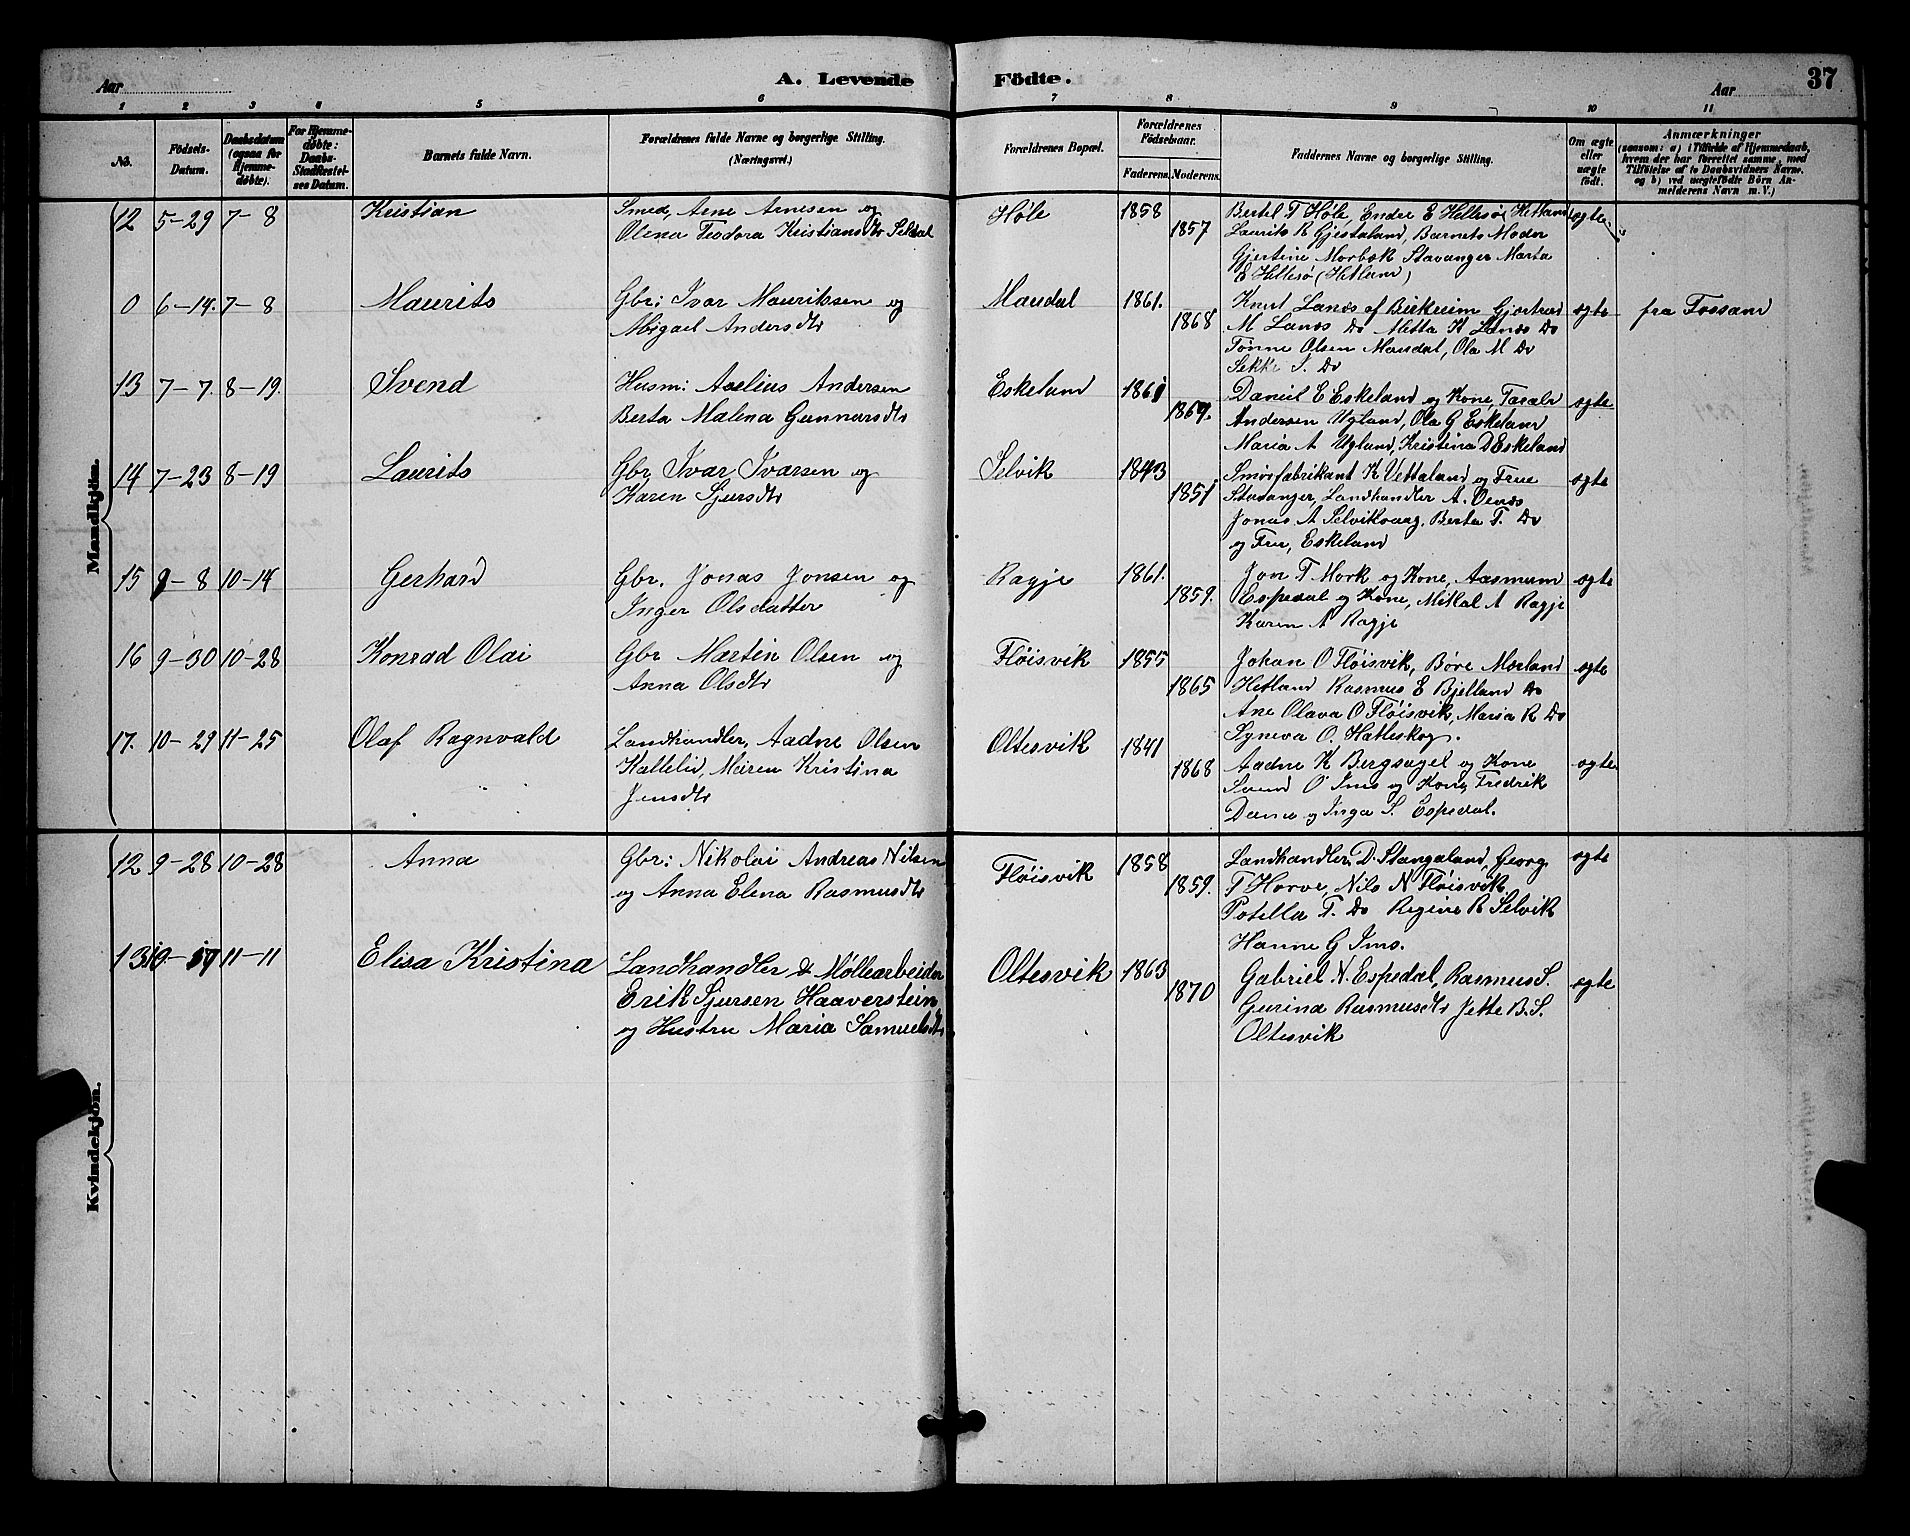 Aar
A. Levende Födte.
Aar 37
1 2 3 4 5 6 7 8 9 10 11
No.
Födsels-Datum.
Daabsdatum (ogsaa for Hjemme-døbte).
For Hjemme-døbte: Daabs-Stadfæstel-ses Datum.
Barnets fulde Navn.
Forældrenes fulde Navne og borgerlige Stilling. (Næringsvei.)
Forældrenes Bopæl.
Forældrenes Fødselsaar.
Faderens. Moderens.
Faddernes Navne og borgerlige Stilling.
Om ægte eller uægte født.
Anmærkninger
(saasom: a) i Tilfælde af Hjemmedaab, hvem der har forrettet samme, med Tilføielse af to Daabsvidners Navne. og b) ved uægtefødte Børn An-melderens Navn m. V.)
Mandkjön.
12 5-29 7-8 Kristian
Smed, Arne Arnesen og
Olena Teodora Kristiansdtr Seldal
Høle 1858 1857
Bertel T Høle, Endre E Hellesø (Hetland
Laurits R Gjestaland, Barnets Moder
Gjertine Morbæk Stavanger Marta
E Hellesø (Hetland)
ægte
0 6-14. 7-8 Maurits
Gbr: Ivar Mauritsen og
Abigael Andersdtr
Maudal 1861. 1868
Knut Lanæs af Birkreim Gjertrud
M Lanæs Do Metta K Lanæs Do
Tønne Olsen Maudal, Ola M Do
Sekke I. Do
ægte fra Fossand
13 7-7. 8-19. Svend
Husm: Aselius Andersen
Berta Malena Gunnarsdtr
Eskeland 1861 1867.
Daniel E Eskeland og Kone, Taralv
Andersen Ugland, Ola G Eskeland
Maria A Ugland, Kristina D Eskeland
ægte
14 7-23 8-19 Laurits
Gbr Ivar Ivarsen og
Karen Sjursdtr
Selvik 1843 1851
Smörfabrikant K Vettaland og Frue
Stavanger, Landhandler A. Oenæs
Jonas A Selvikvaag, Berta T. Do
og Frue, Eskeland
ægte
15 8-8 10-14 Gerhard
Gbr. Jonas Jonsen og
Inger Olsdatter
Ragje 1861. 1859.
Jon T Mork og Kone, Aasmund
Espedal og Kone, Mikal A Ragje
Karen A Ragje
ægte
16 9-30 10-28 Konrad Olai
Gbr Martin Olsen og
Anna Olsdtr
Fløisvik 1855 1865
Johan O Fløisvik, Børe Morland
Hetland Rasmus E Bjelland Do
Ane Olava O Fløisvik, Maria R Do
Syneva O. Hatleskog.
ægte
17. 10-29 11-25 Olaf Ragnvald
Landhandler, Aadne Olsen
Kallelid, Meiren Kristina
Jensdtr
Oltesvik 1841 1868
Aadne K Bergsagel og Kone
Svend O Ims og Kone, Fredrik
Dana og Inga S. Espedal.
ægte
Kvindekjön.
12 9-28 10-28 Anna
Gbr: Nikolai Andreas Nilsen
og Anna Elena Rasmusdtr
Fløisvik 1858 1859.
Landhandler D. Stangaland, Georg
T Horve, Nils N Fløisvik
Potella T. Do Regine R Selvik
Hanne G Ims.
ægte
13 10-17 11-11 Elisa Kristina
Landhandler & Møllearbeider
Erik Sjursen Haaverstein
og Hustru Maria Samuelsdtr
Oltesvik 1863 1870
Gabriel N. Espedal, Rasmus S.
Gurina Rasmusdtr Jette B. S.
Oltesvik
ægte